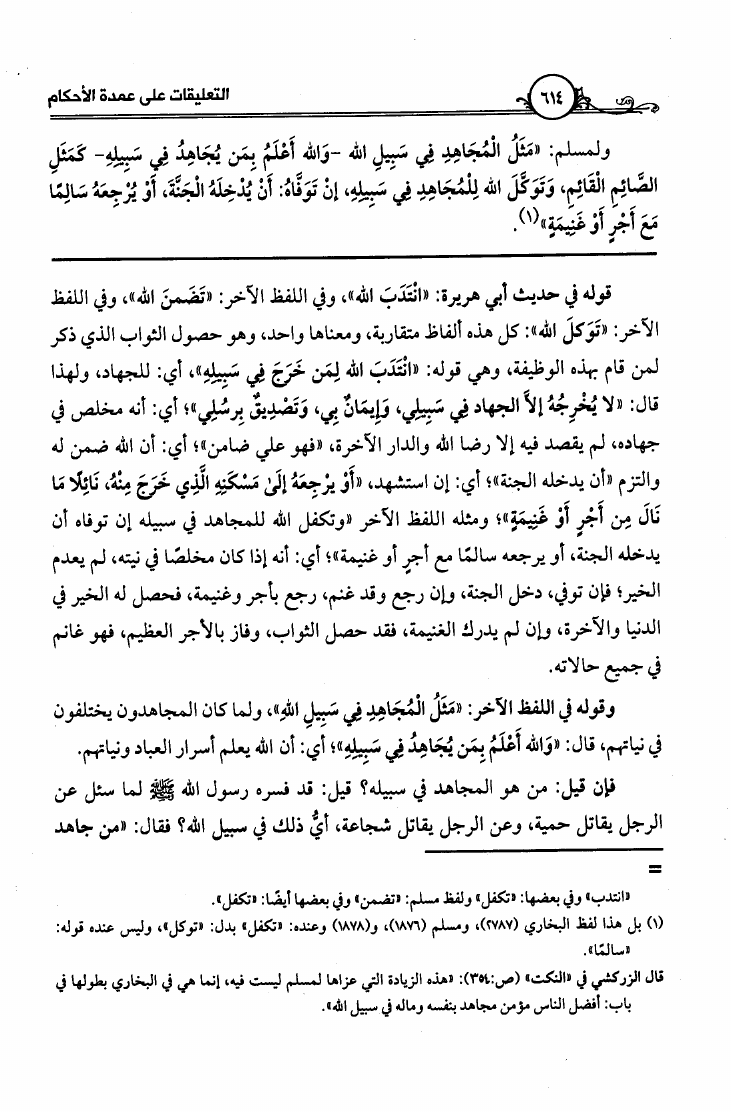 التعليقات على عمدة الأحكام
٦١٤
ولمسلم: «مَثَلُ الْمُجَاهِدِ فِي سَبِيلِ الله -وَالله أَعْلَمُ بِمَن يُجَاهِدُ فِي سَبِيلِهِ- كَمَثَلِ
الصَّائِمِ الْقَائِمِ، وَتَوَكَّلَ الله لِلْمُجَاهِدِ فِي سَبِيلِهِ، إِنْ تَوَفَّاهُ: أَنْ يُدْخِلَهُ الْجَنَّةَ، أَوْ يُرْجِعَهُ سَالِمًا
مَعَ أَجْرٍ أَوْ غَنِيمَةٍ»(١).
قوله في حديث أبي هريرة: «انْتَدَبَ الله»، وفي اللفظ الآخر: «تَضَمنَ الله»، وفي اللفظ
الآخر: «تَوَكلَ الله»: كل هذه ألفاظ متقاربة، ومعناها واحد، وهو حصول الثواب الذي ذكر
لمن قام بهذه الوظيفة، وهي قوله: «انْتَدَبَ الله لِمَن خَرَجَ فِي سَبِيلِهِ»، أي: للجهاد، ولهذا
قال: «لا يُخْرِجُهُ إلاَّ الجهاد فِي سَبِيلِي، وَإِيمَانٌ بِي، وَتَصْدِيقٌ بِرسُلِي»؛ أي: أنه مخلص في
جهاده، لم يقصد فيه إلا رضا الله والدار الآخرة، «فهو علي ضامن»؛ أي: أن الله ضمن له
والتزم «أن يدخله الجنة»؛ أي: إن استشهد، «أَوْ يرْجِعَهُ إلىٰ مَسْكَنِهِ الَّذِي خَرَجَ مِنْهُ، نَائِلًا مَا
نَالَ مِن أَجْرٍ أَوْ غَنِيمَةٍ»؛ ومثله اللفظ الآخر «وتكفل الله للمجاهد في سبيله إن توفاه أن
يدخله الجنة، أو يرجعه سالمًا مع أجرٍ أو غنيمة»؛ أي: أنه إذا كان مخلصًا في نيته، لم يعدم
الخير؛ فإن توفي، دخل الجنة، وإن رجع وقد غنم، رجع بأجر وغنيمة، فحصل له الخير في
الدنيا والآخرة، وإن لم يدرك الغنيمة، فقد حصل الثواب، وفاز بالأجر العظيم، فهو غانم
في جميع حالاته.
وقوله في اللفظ الآخر: «مَثَلُ الْمُجَاهِدِ فِي سَبِيلِ اللهِ»، ولما كان المجاهدون يختلفون
في نياتهم، قال: «وَالله أَعْلَمُ بِمَن يُجَاهِدُ فِي سَبِيلِهِ»؛ أي: أن الله يعلم أسرار العباد ونياتهم.
فإن قيل: من هو المجاهد في سبيله؟ قيل: قد فسره رسول الله ﷺ لما سئل عن
الرجل يقاتل حمية، وعن الرجل يقاتل شجاعة، أيُّ ذلك في سبيل الله؟ فقال: «من جاهد
=
«انتدب» وفي بعضها: «تكفل» ولفظ مسلم: «تضمن» وفي بعضها أيضًا: «تكفل».
(١) بل هذا لفظ البخاري (٢٧٨٧)، ومسلم (١٨٧٦)، و(١٨٧٨) وعنده: «تكفل» بدل: «توكل»، وليس عنده قوله:
«سالمًا».
قال الزركشي في «النكت» (ص:٣٥٤): «هذه الزيادة التي عزاها لمسلم ليست فيه، إنما هي في البخاري بطولها في
باب: أفضل الناس مؤمن مجاهد بنفسه وماله في سبيل الله».